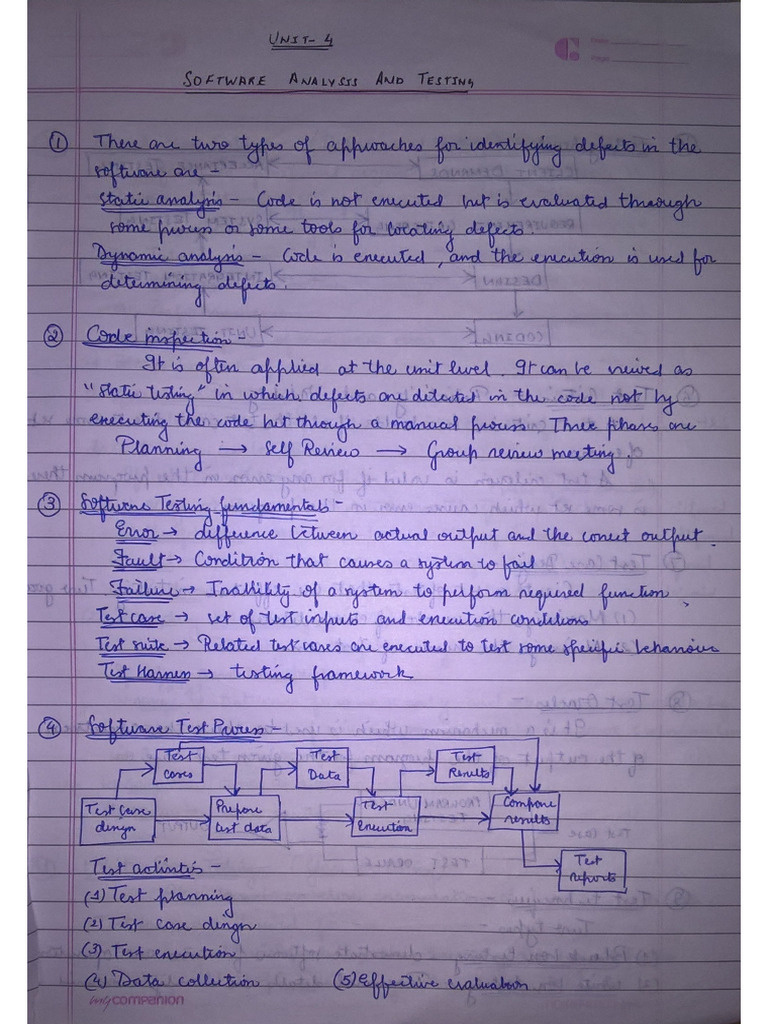 UNIT-4
SOFTWARE ANALYSIS AND TESTING
① There are two types of approaches for identifying defects in the
software are -
Static analysis - Code is not executed but is evaluated through
some process or some tools for locating defects.
Dynamic analysis - Code is executed, and the execution is used for
determining defects.
② Code inspection -
It is often applied at the unit level. It can be viewed as
"static testing" in which defects are detected in the code not by
executing the code but through a manual process. Three phases are
Planning → Self Review → Group review meeting.
③ Software Testing fundamentals -
Error → difference between actual output and the correct output.
Fault → Condition that causes a system to fail
Failure → Inability of a system to perform required function.
Test case → set of test inputs and execution conditions
Test suite → Related test cases are executed to test some specific behaviour
Test Harness → testing framework
④ Software Test Process -
Test cases
Test Data
Test Results
Test case design
Prepare test data
Test Execution
Compare results
Test reports
Test activities -
(1) Test planning
(2) Test case design
(3) Test execution
(4) Data collection (5) Effective evaluation
companion